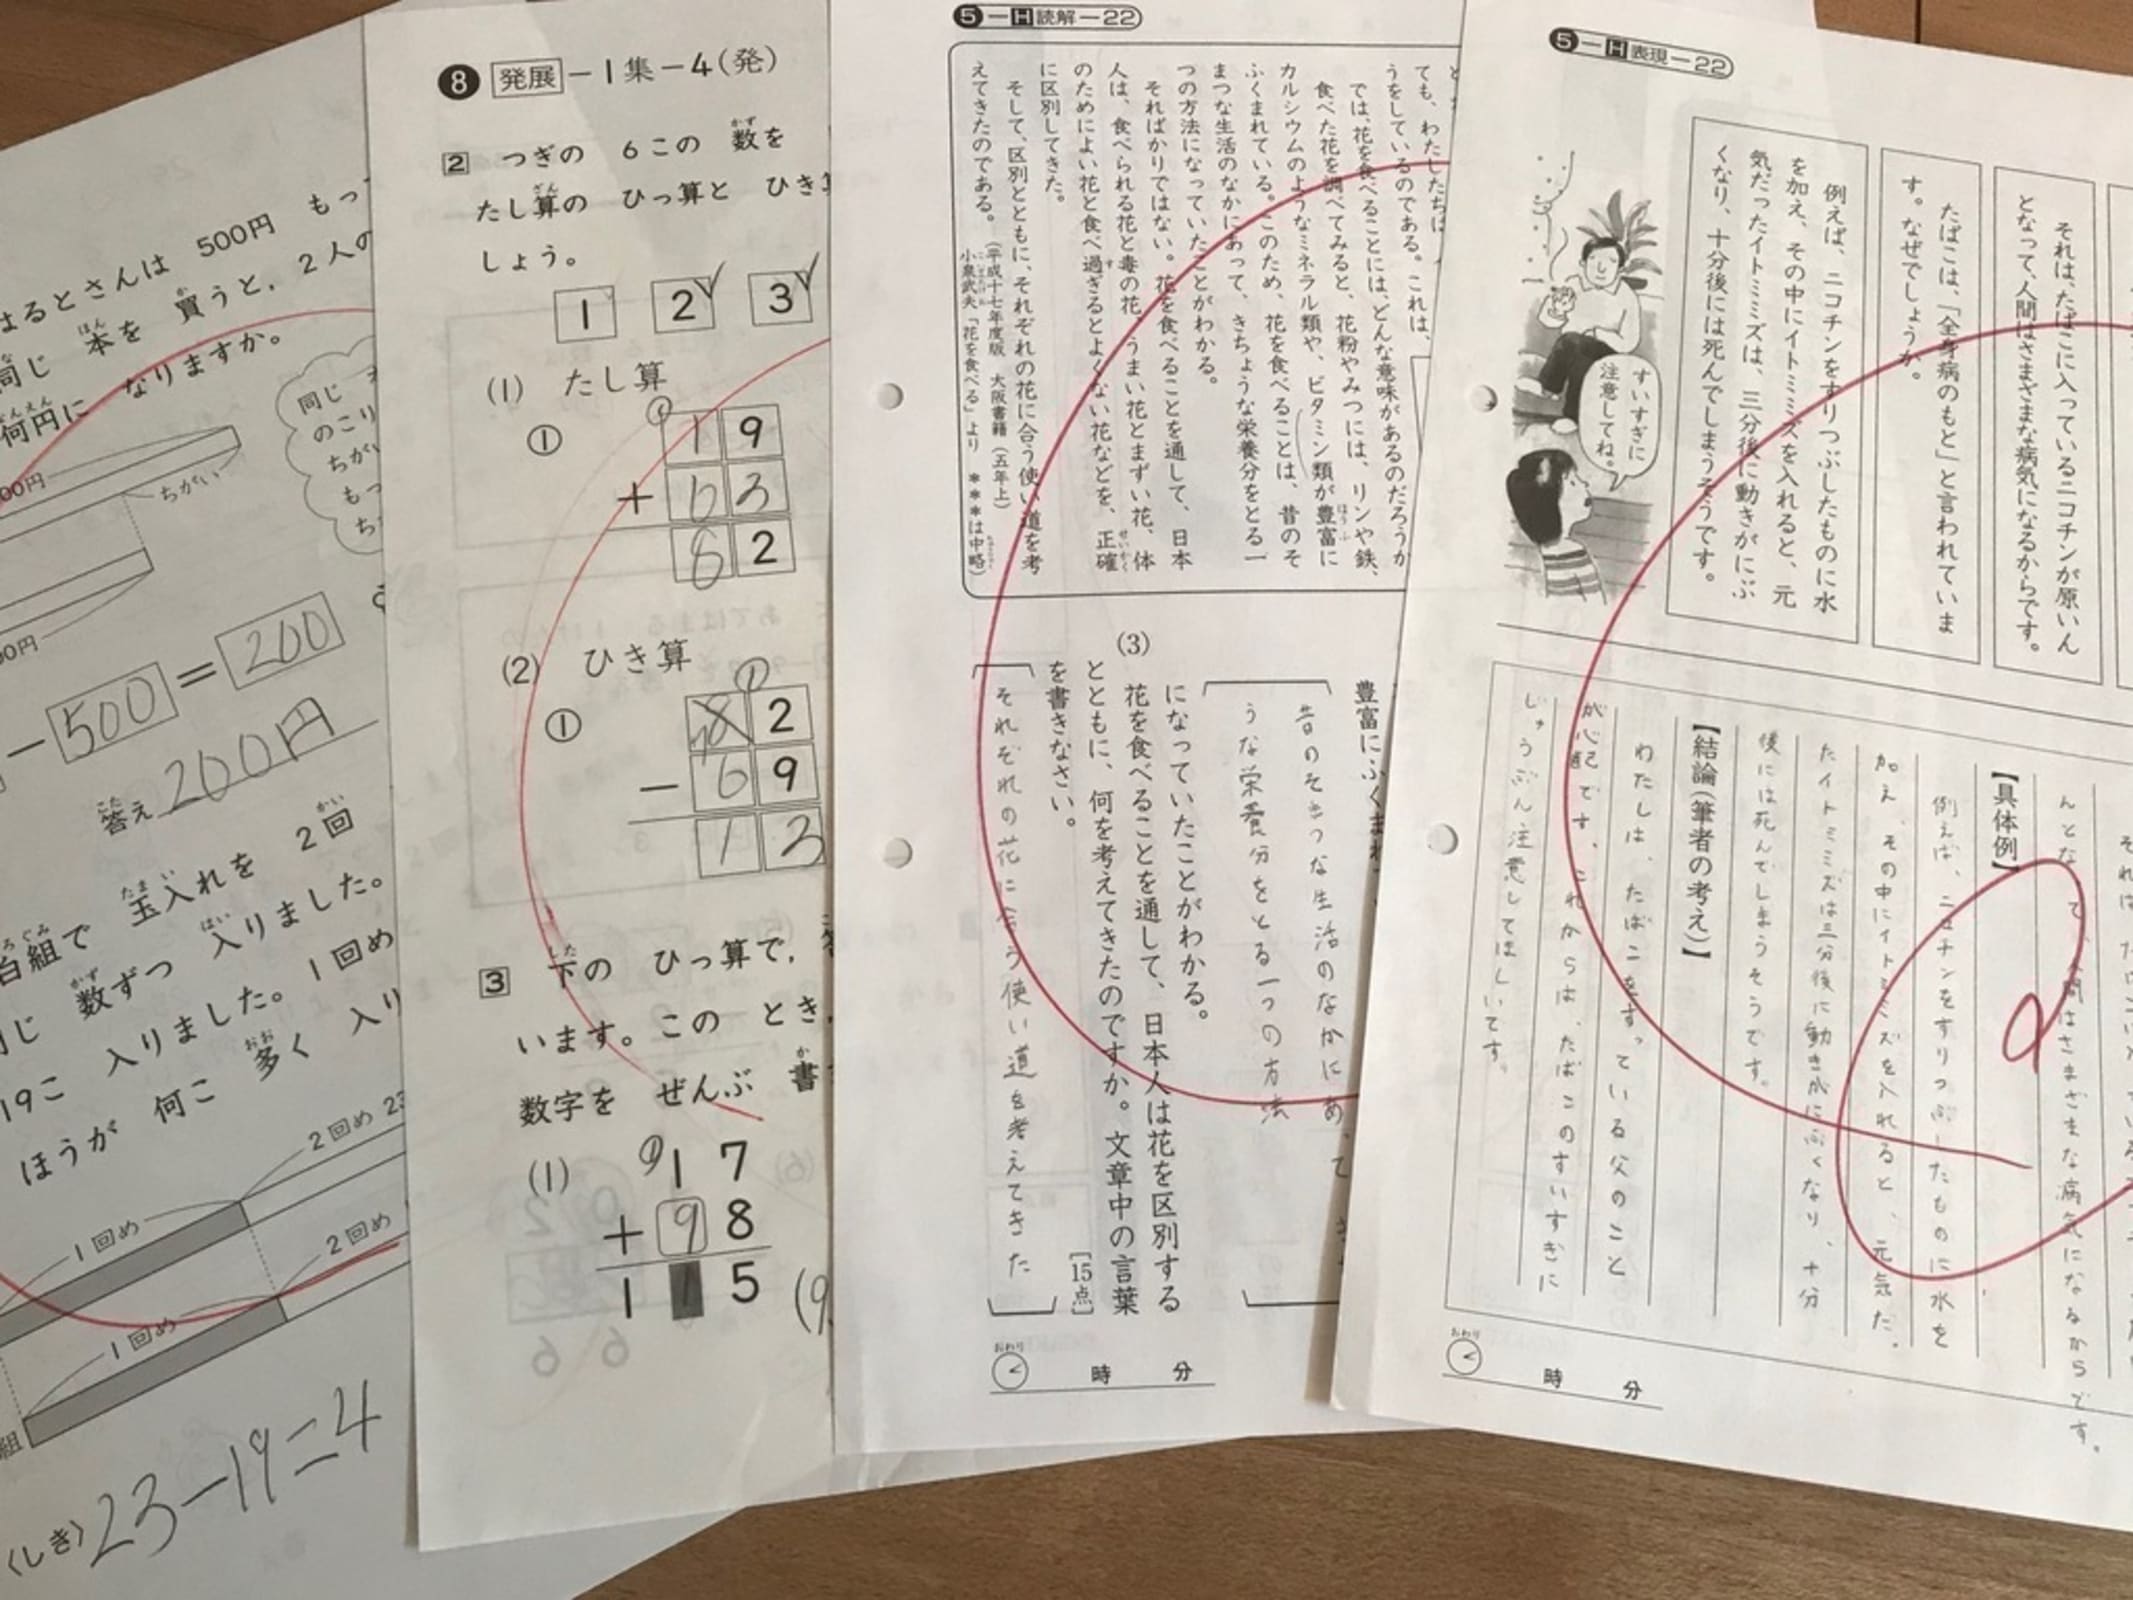 はるとさんは 500円 もっ
同じ 本を 買うと, 2人の
何円に なりますか。
同じ
のこり
ちがい
もっ
ち
ちがい
00円
00円
−500=200
答え 200円
白組で 玉入れを 2回
同じ 数ずつ 入りました。
19こ 入りました。1回め
ほうが 何こ 多く 入り
2回め 23
1回め
2回め
1回め
組
〈しき〉23−19=4
8 発展−1集−4(発)
2 つぎの 6この 数を
たし算の ひっ算と ひき算
しょう。
1 2 3
(1) たし算
①
1 9
+ 6 3
8 2
(2) ひき算
①
8 2
− 6 9
1 3
3 下の ひっ算で,
います。この とき,
数字を ぜんぶ 書
(1)
1 7
+ 9 8
1 1 5
(9
5−H読解−22
ても、わたしたちは
うをしているのである。これは、
では、花を食べることには、どんな意味があるのだろうか
食べた花を調べてみると、花粉やみつには、リンや鉄、
カルシウムのようなミネラル類や、ビタミン類が豊富に
ふくまれている。このため、花を食べることは、昔のそ
まつな生活のなかにあって、きちょうな栄養分をとる一
つの方法になっていたことがわかる。
そればかりではない。花を食べることを通して、日本
人は、食べられる花と毒の花、うまい花とまずい花、体
のためによい花と食べ過ぎるとよくない花などを、正確
に区別してきた。
そして、区別とともに、それぞれの花に合う使い道を考
えてきたのである。
(平成十七年度版 大阪書籍(五年上)
小泉武夫「花を食べる」より ***は中略)
豊富にふくまれ
昔のそまつな生活のなかにあって、き
うな栄養分をとる一つの方法
になっていたことがわかる。
(3) 花を食べることを通して、日本人は花を区別する
とともに、何を考えてきたのですか。文章中の言葉
を書きなさい。
[15点]
それぞれの花に合う使い道を考えてきた
おわり
時 分
5−H表現−22
それは、たばこに入っているニコチンが原いん
となって、人間はさまざまな病気になるからです。
たばこは、「全身病のもと」と言われていま
す。なぜでしょうか。
例えば、ニコチンをすりつぶしたものに水
を加え、その中にイトミミズを入れると、元
気だったイトミミズは、三分後に動きがにぶ
くなり、十分後には死んでしまうそうです。
すいすぎに
注意してね。
んとなって、人間はさまざまな病気になるからです。
【具体例】
例えば、ニコチンをすりつぶしたものに水を
加え、その中にイトミミズを入れると、元気だ
たイトミミズは三分後に動きがにぶくなり、十分
後には死んでしまうそうです。
【結論(筆者の考え)】
わたしは、たばこをすっている父のこと
が心配です。これからは、たばこのすいすぎに
じゅうぶん注意してほしいです。
おわり
時 分